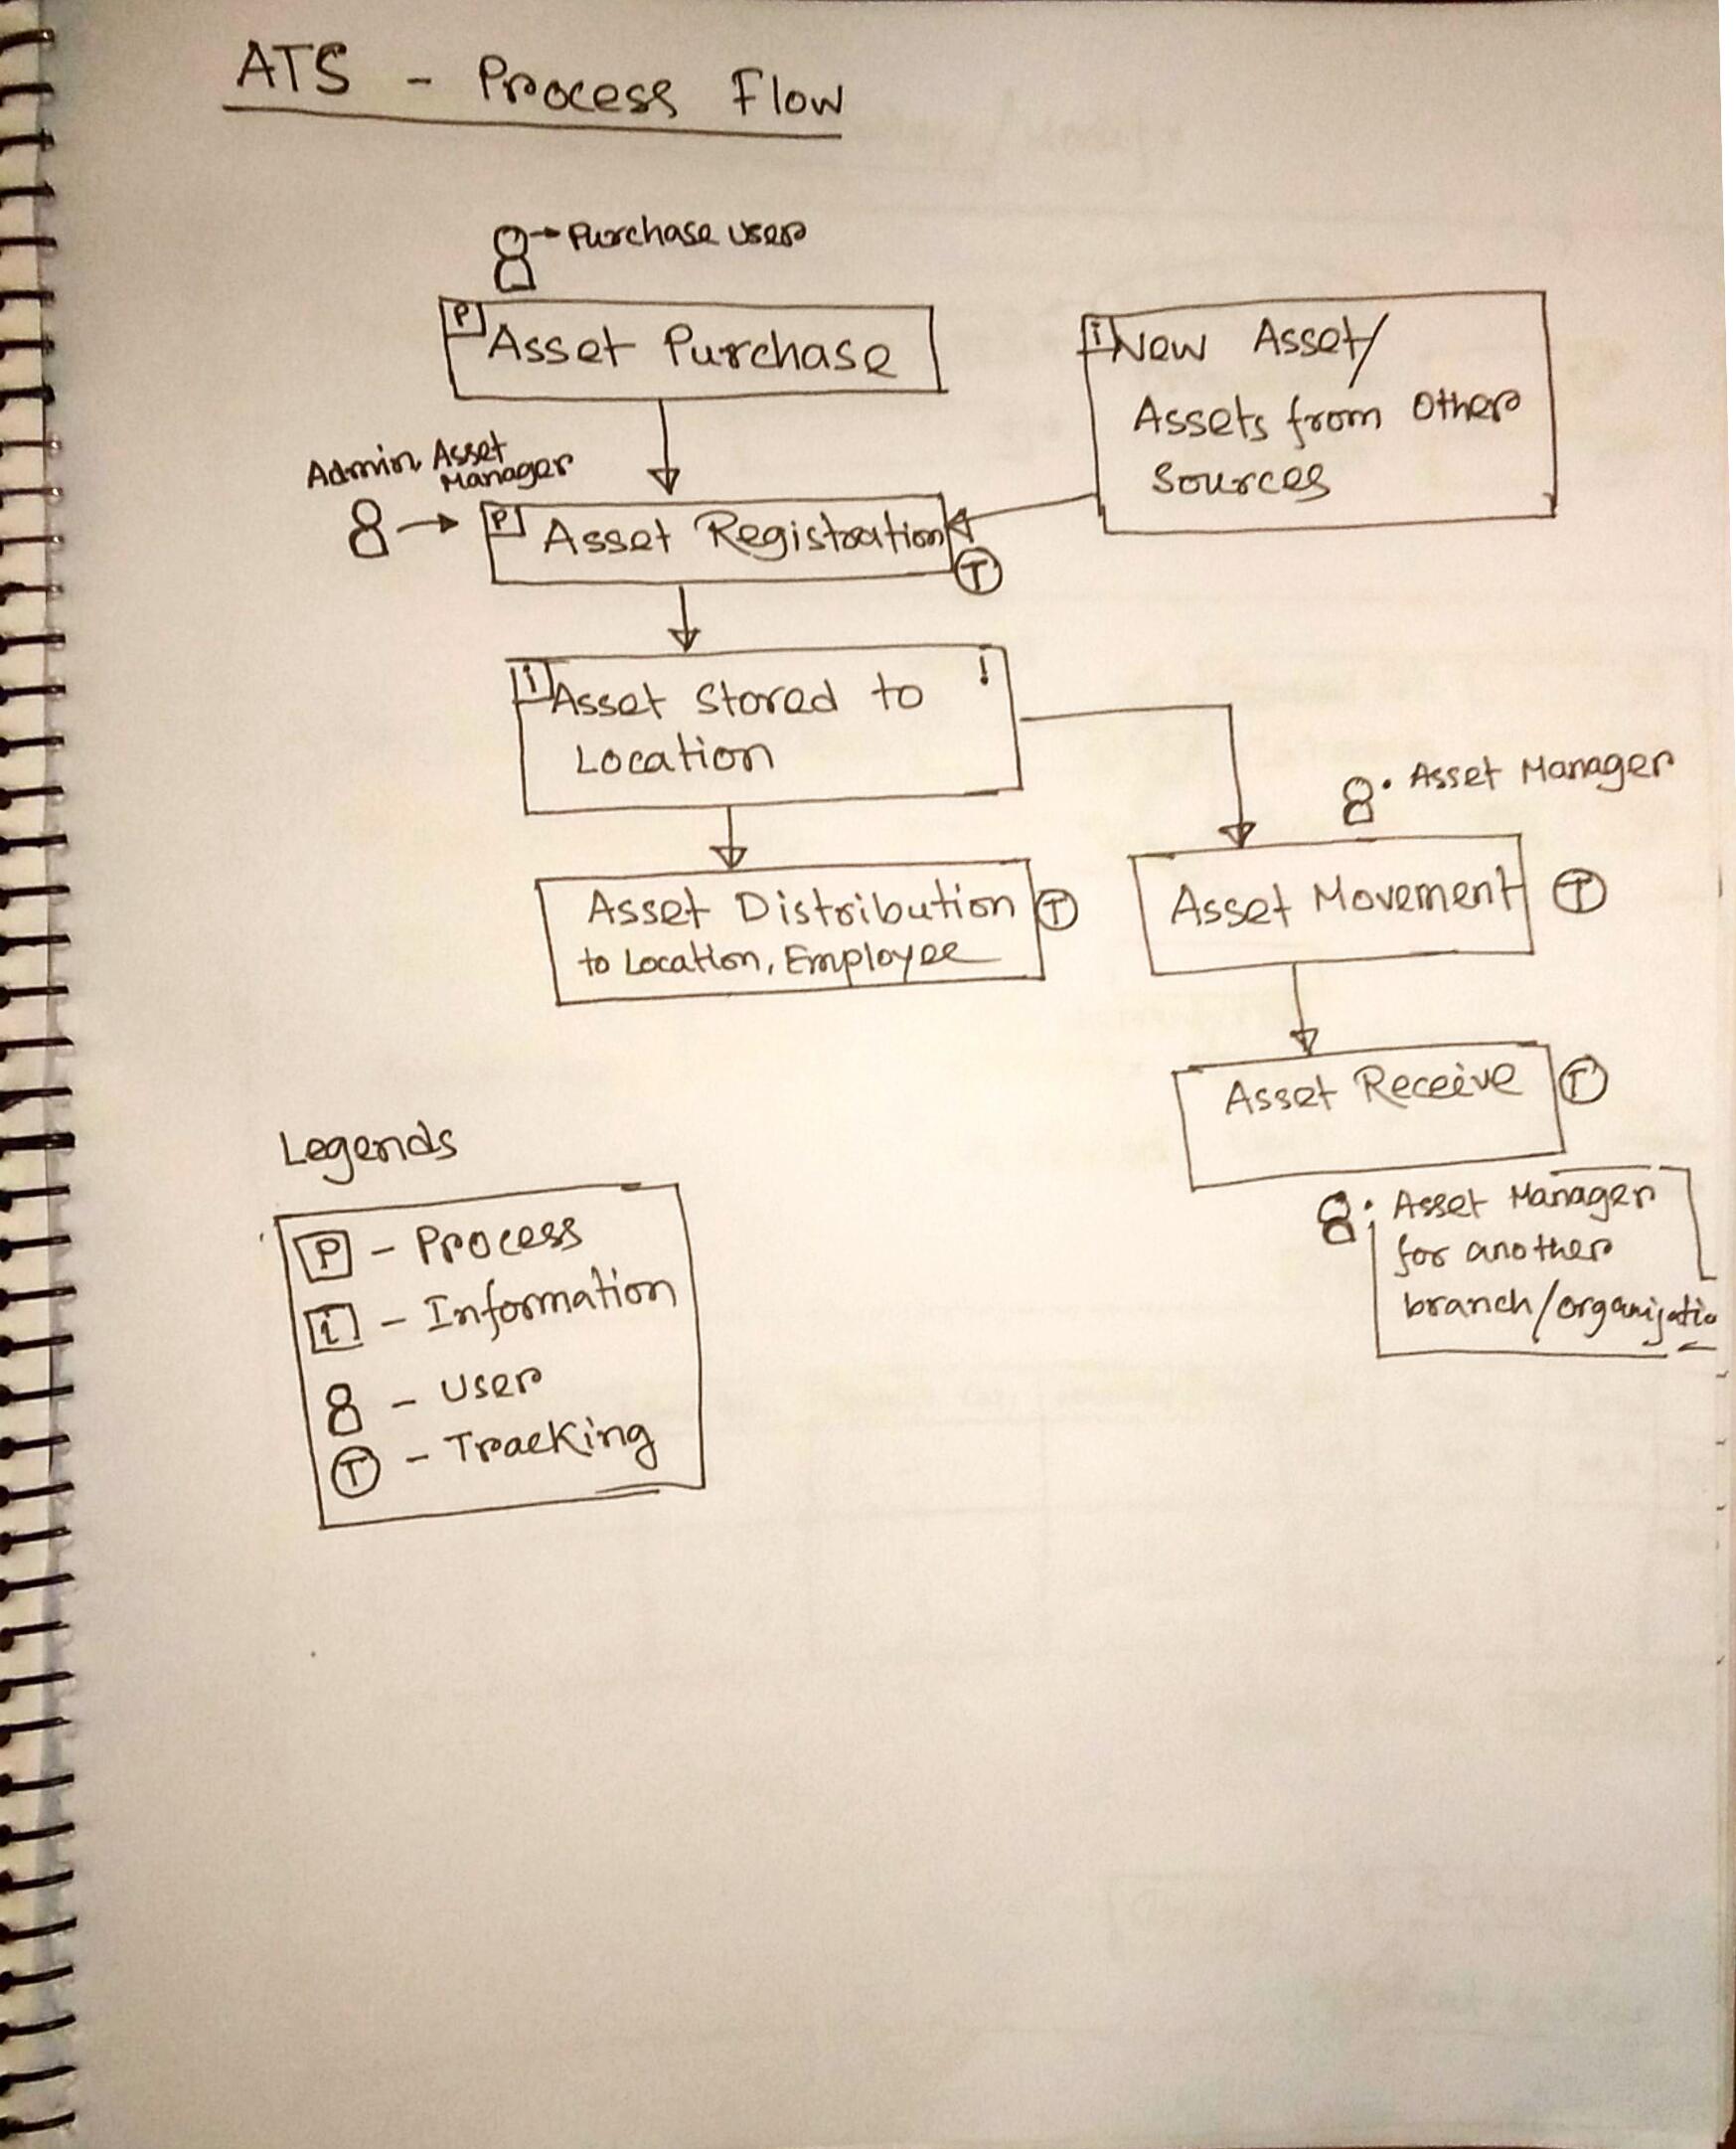 ATS - Process Flow
Purchase User
P
Asset Purchase
i
New Asset/
Assets from Other
Sources
Admin, Asset
Manager
P
Asset Registration
T
i
Asset Stored to
Location
!
Asset Manager
Asset Distribution
to Location, Employee
T
Asset Movement
T
Asset Receive
T
Asset Manager
for another
branch/organizatio
Legends
P - Process
i - Information
- User
T - Tracking